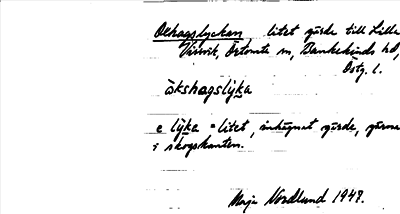 Oxhagslyckan litet gärde till Lilla
Vårvik, Örtomta sn, Bankekinds hd,
Östg. l.
òkshagslyka
e lyka = litet, inhägnat gärde, gärna
i skogskanten.
Maja Nordlund 1947.